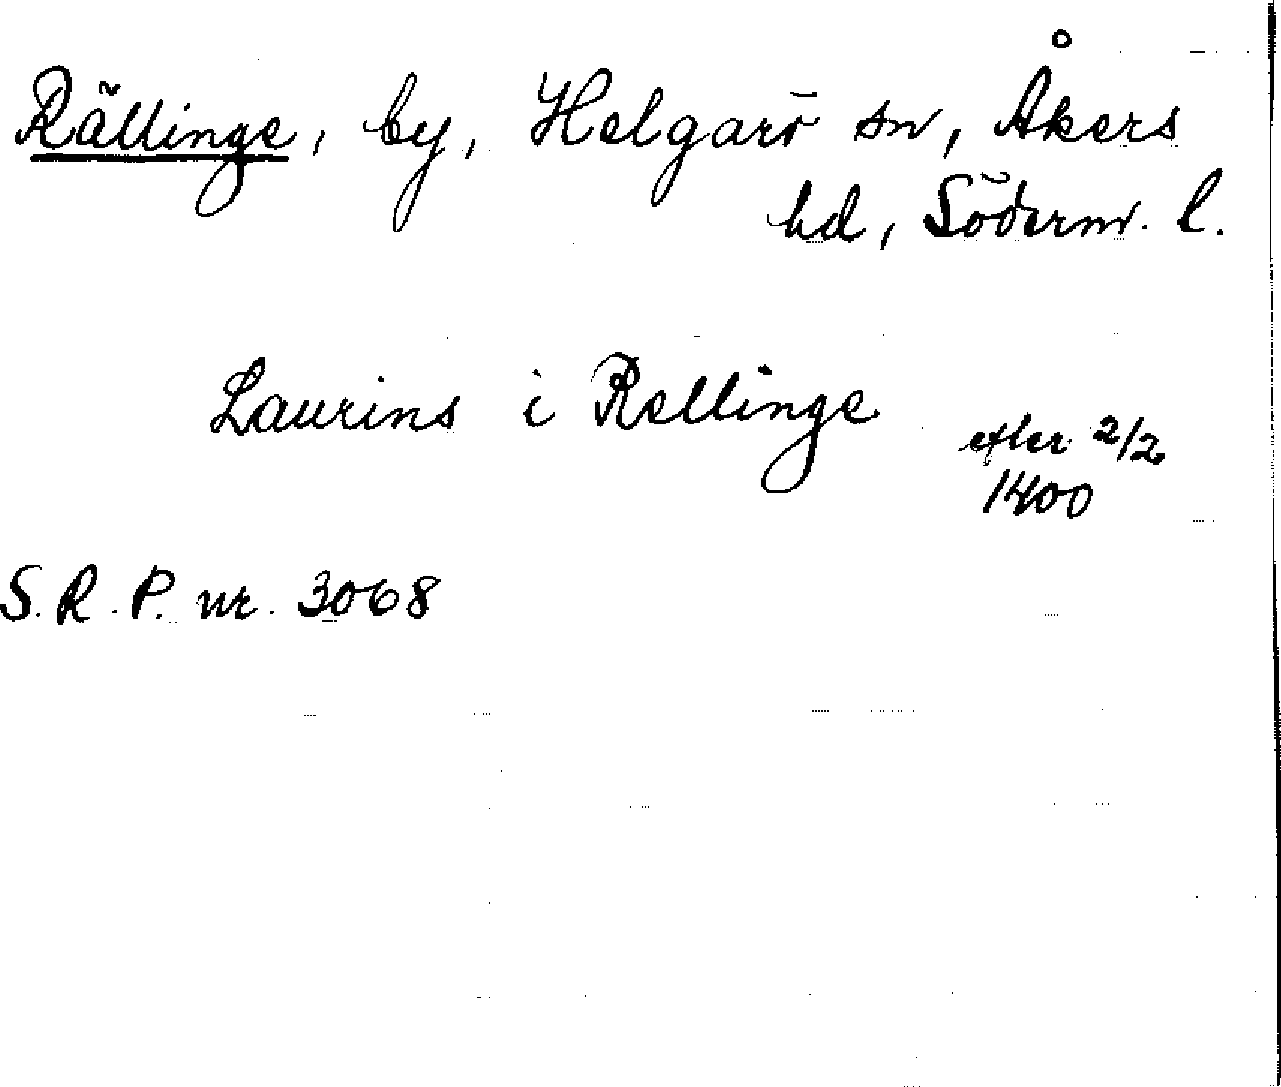 Rällinge, by, Helgarö sn, Åkers
hd, Söderm. l.
Laurins i Rellinge
efter 2/2
1400
S.R.P. nr. 3068